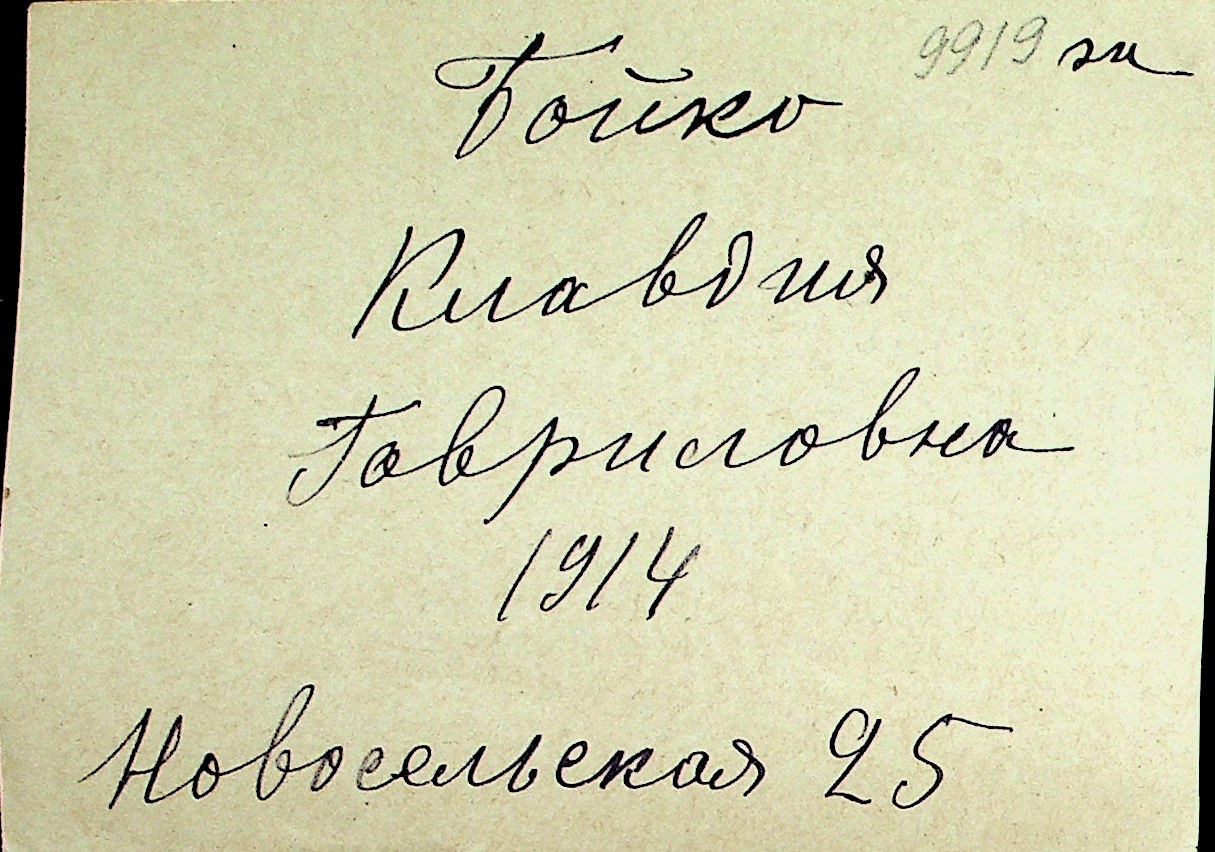 9919 эи
Бойко
Клавдия
Гавриловна
1914
Новосельская 25